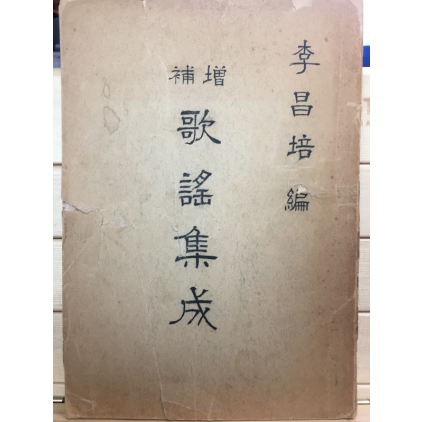 李昌培編
增補
歌謠集成